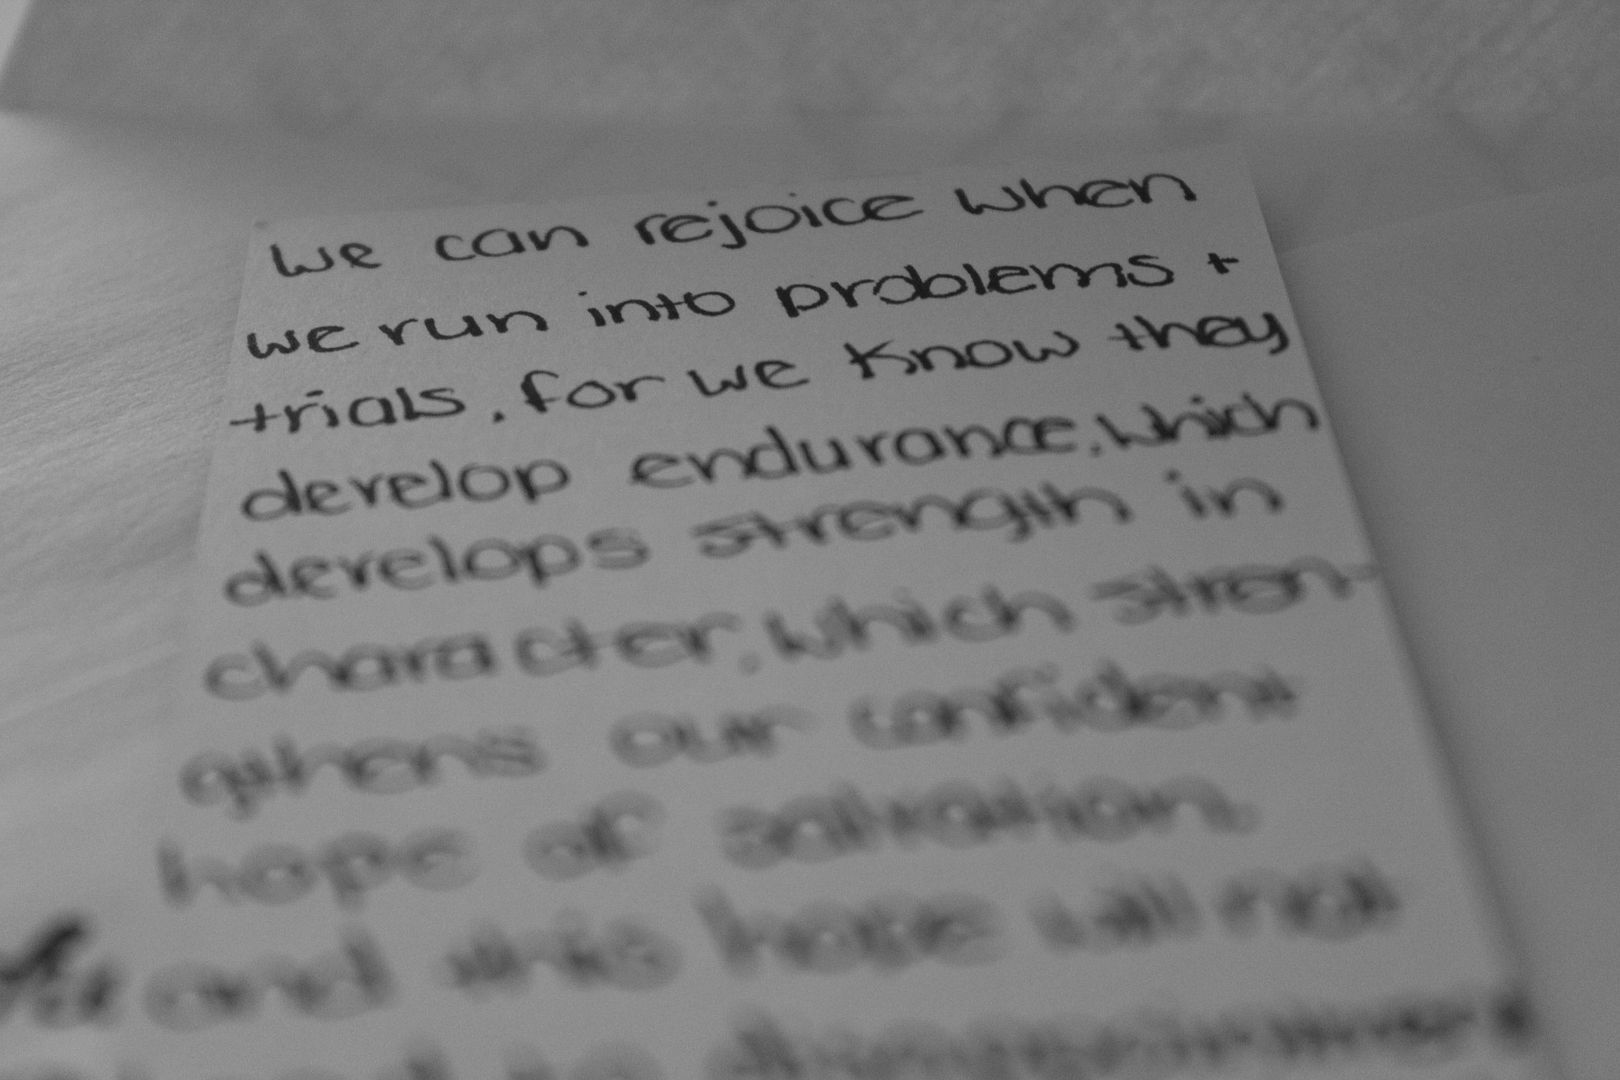 We can rejoice when
we run into problems +
trials, for we know they
develop endurance, which
develops strength in
character, which stren-
gthens our confident
hope of salvation.
and this hope will not